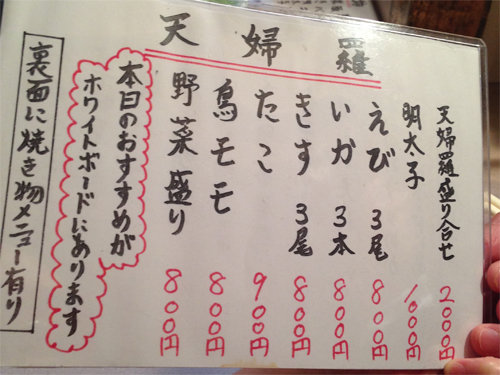 天婦羅
天婦羅盛り合せ 2000円
明太子 1000円
えび 3尾 800円
いか 3本 800円
きす 3尾 800円
たこ 900円
鳥モモ 800円
野菜盛り 800円
本日のおすすめが
ホワイトボードにあります
裏面に焼き物メニュー有り